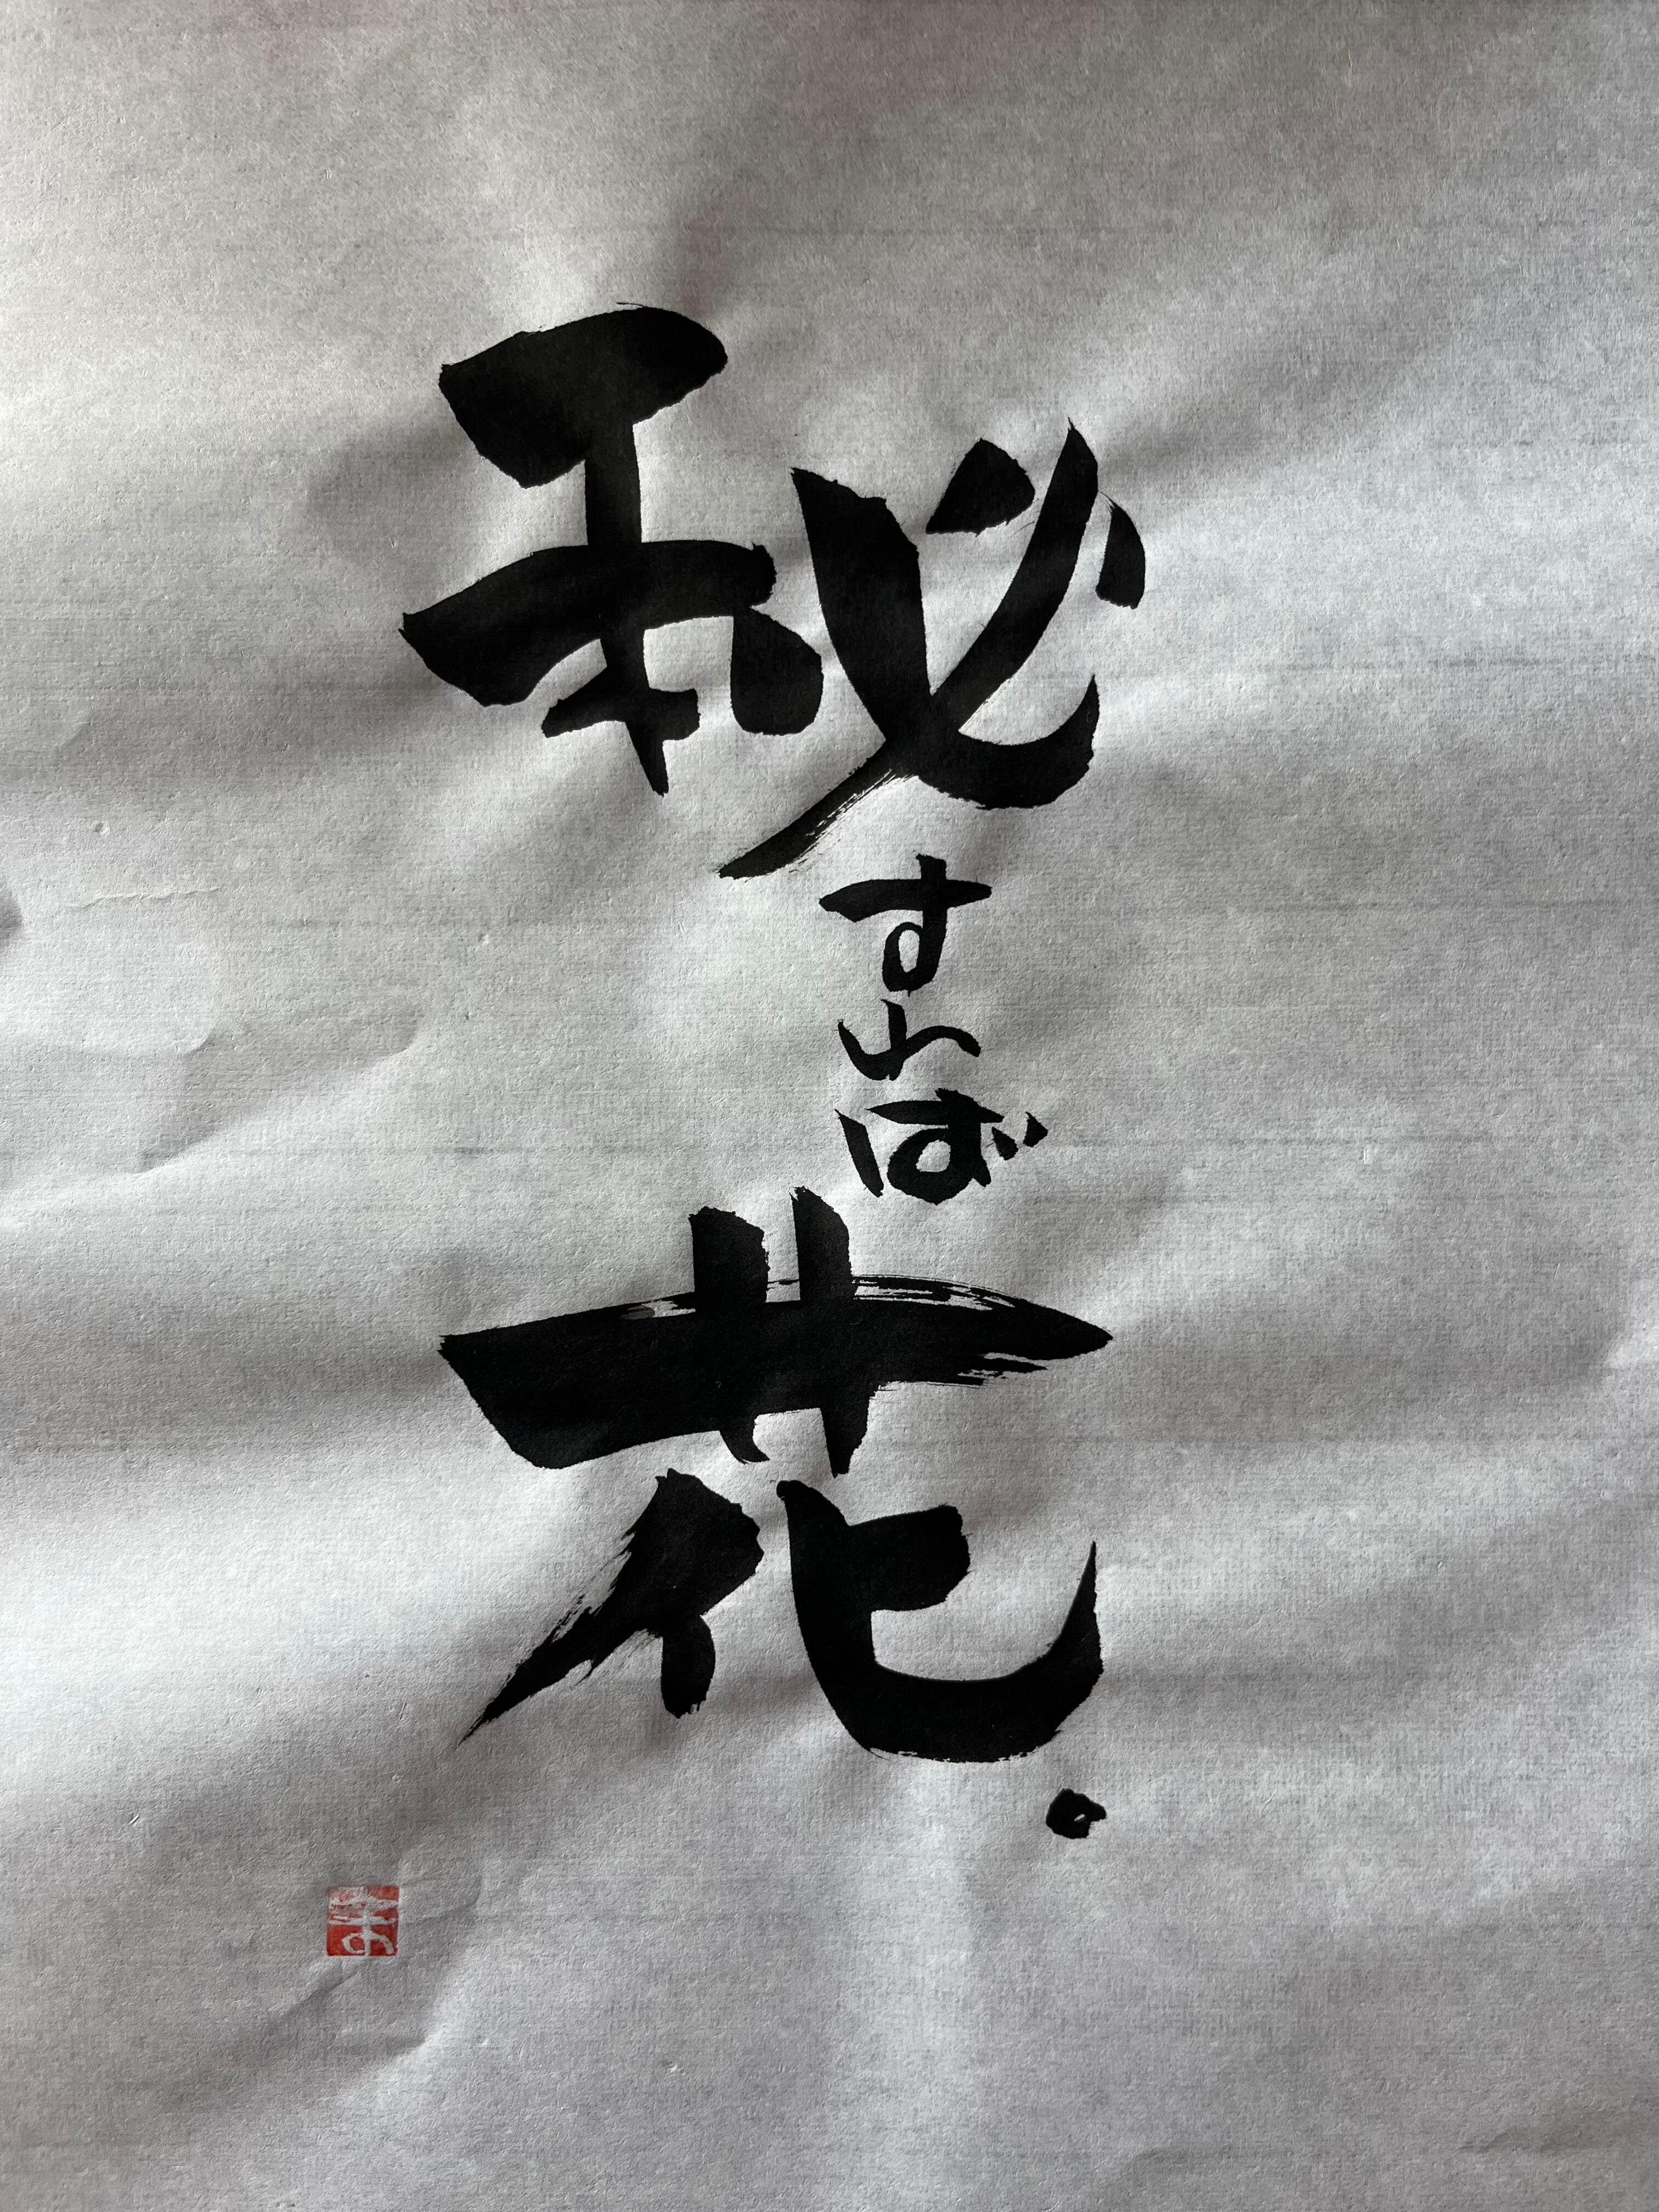 秘すれば花。